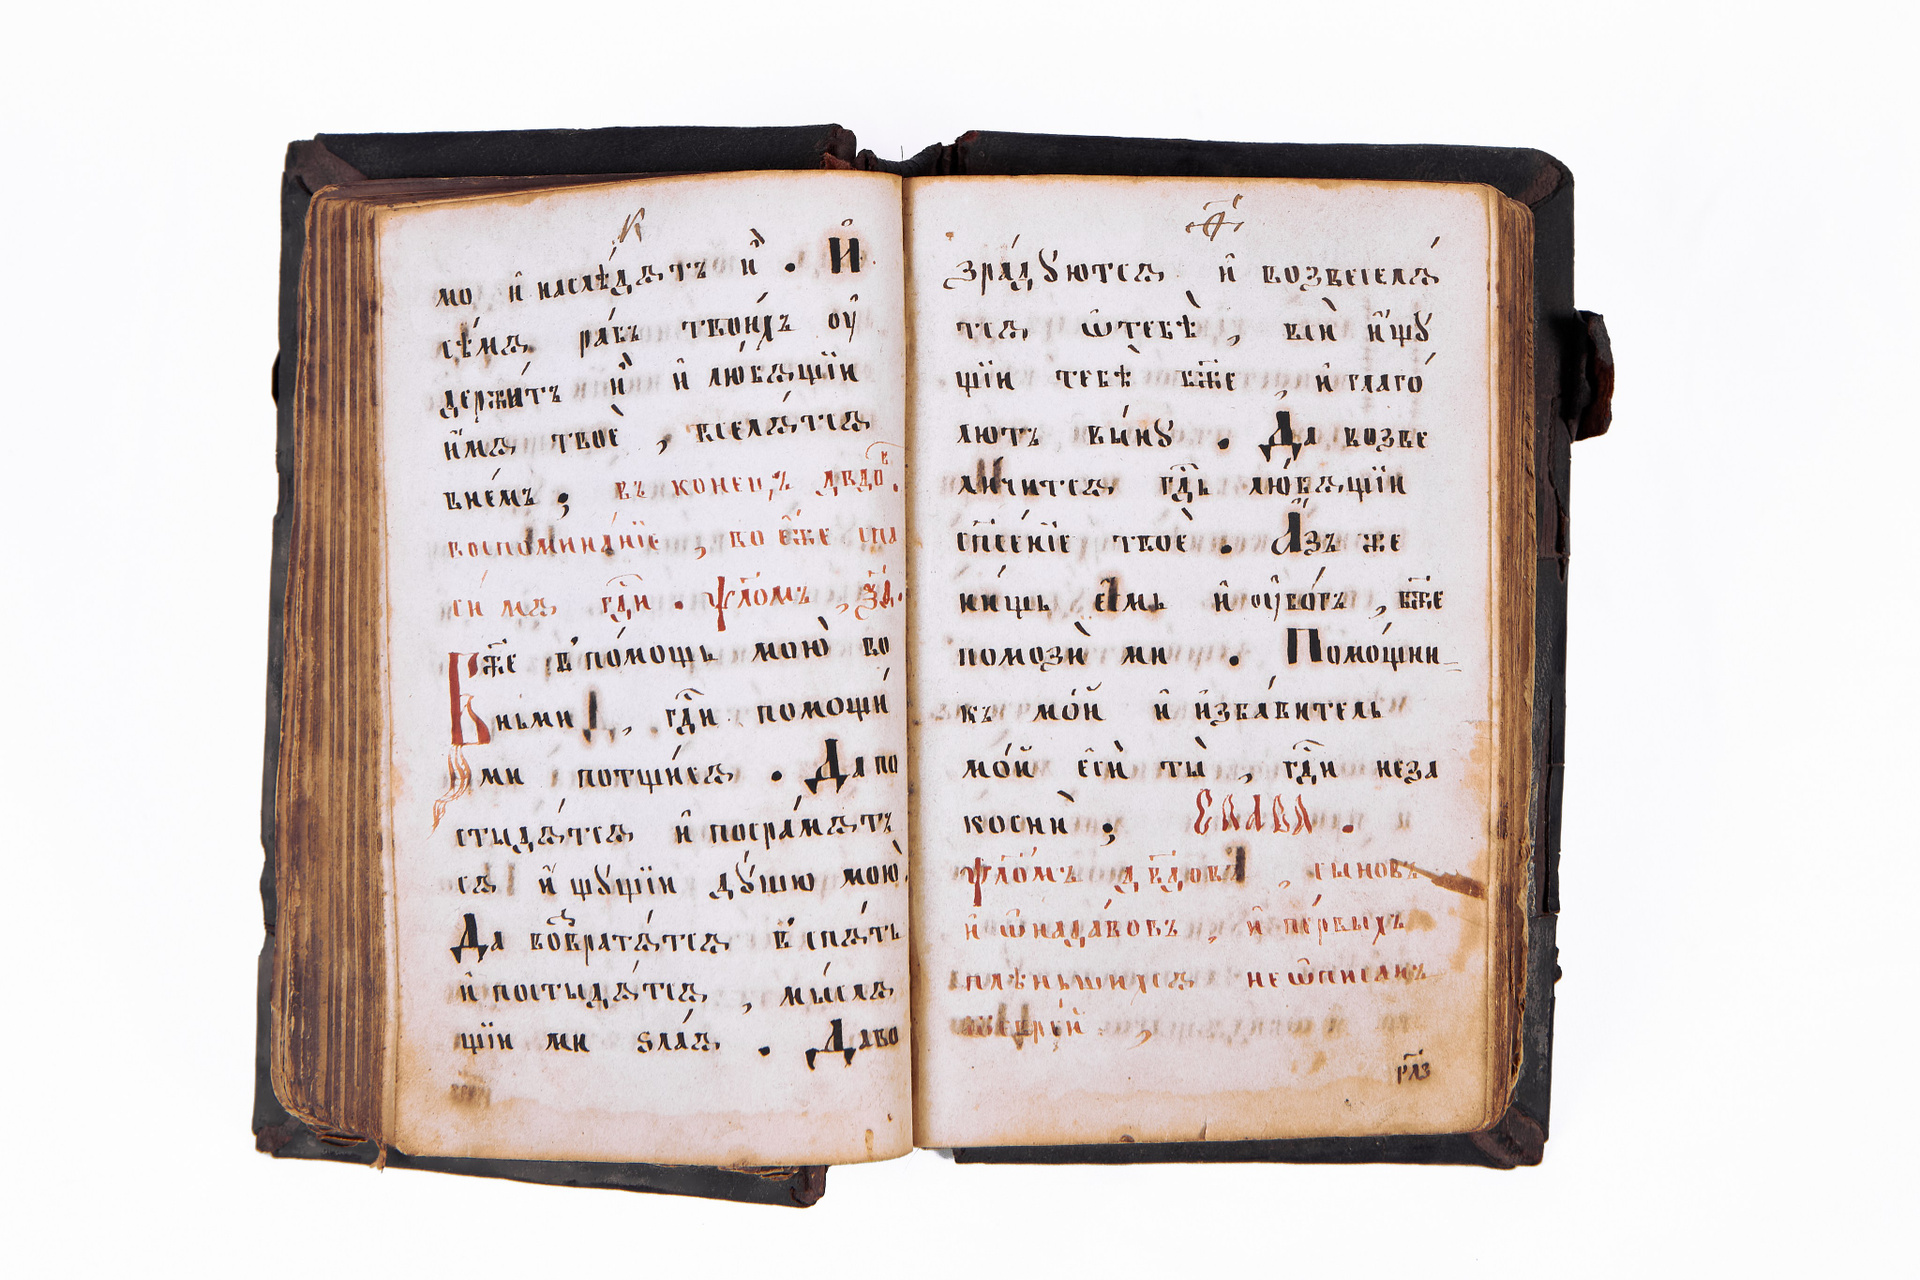 К
мо и҆ наслѣ́дѧтъ и҆̀ . И҆
сѣ́мѧ ра́бъ твои́хъ оу҆
держи́тъ и҆̀ и҆ лю́бѧщїи
и҆́мѧ твоѐ , вселѧ́тсѧ
внє́мъ ; въ конецъ дв҃дov.
воспомина́нїе , во є҆́же спа
сѝ мѧ гдⷭ҇и . ѱало́мъ , ѯ҃ѳ.
Бж҃е в̾ по́мощь мою̀ во
ньми , гдⷭ҇и помощи́
ми потщи́сѧ . Да по
стыдѧ́тсѧ и҆ посра́мѧтъ
сѧ и҆́щꙋщїи дꙋ́шю мою̀.
Да воⷥвратѧ́тсѧ в̾ спѧ́ть
и҆ постыдѧ́тсѧ , мы́слѧ
щїи ми ѕла́ѧ . Даво
зра́дꙋютсѧ и҆ возвеселѧ́
тсѧ ѡ҆тебѣ̀ , вси̇̀ и҆́щꙋ
щїи тебѣ̀ бж҃е , и҆ глаго́
лютъ вы́нꙋ . Да возве
ли́читсѧ гдⷭ҇ь лю́бѧщїи
сп҃се́нїе твоѐ . А҆́зъ же
ни́щь є҆́смь и҆ оу҆бо́гъ , бж҃е
помозѝ ми . Помо́щни_
къ мо́й и҆ и҆зба́витель
мо́й є҆сѝ ты̀ , гдⷭ҇и неза
коснѝ ; Слава .
ѱало́мъ дв҃довъ , сыновъ
и҆ ѡ҆надавовъ , и҆ пе́рвыхъ
плѣньшихсѧ неѡ҆писанъ
рл҃з